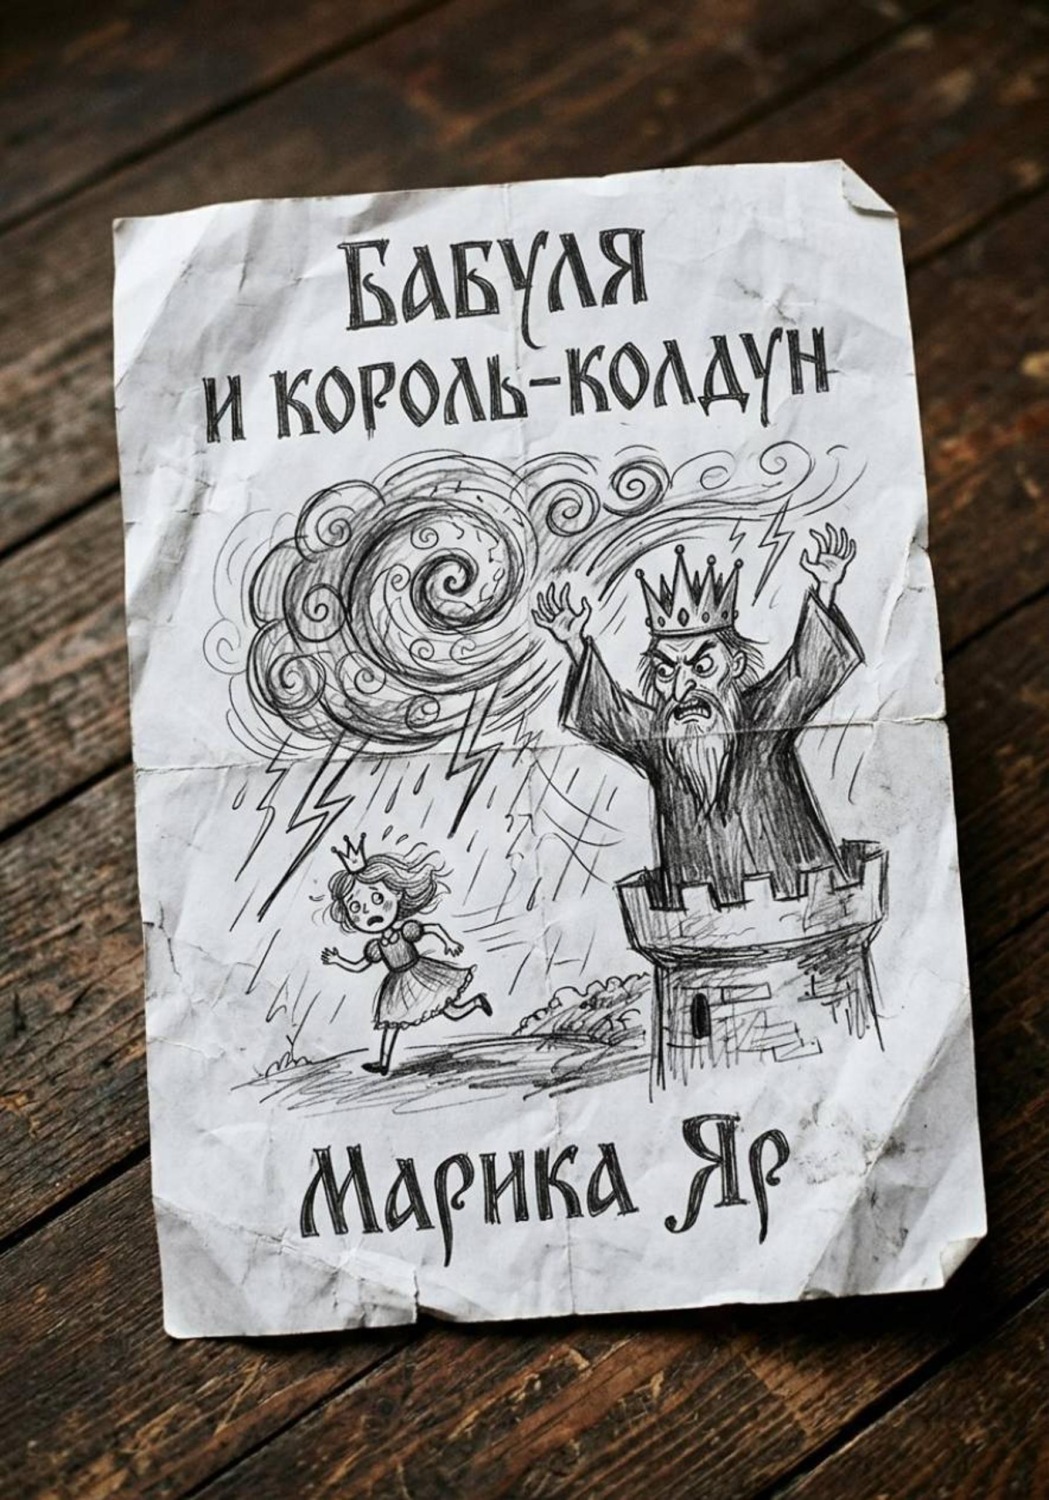 Бабуля
и король-колдун
Марика Яр